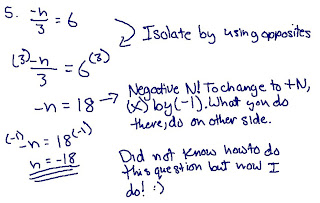 5. -n/3 = 6
Isolate by using opposites
(3) -n/3 = 6 (3)
-n = 18 → Negative N! To change to +N,
(x) by (-1). What you do
there, do on other side.
(-1) -n = 18 (-1)
n = -18
Did not know how to do
this question but now I
do! :)